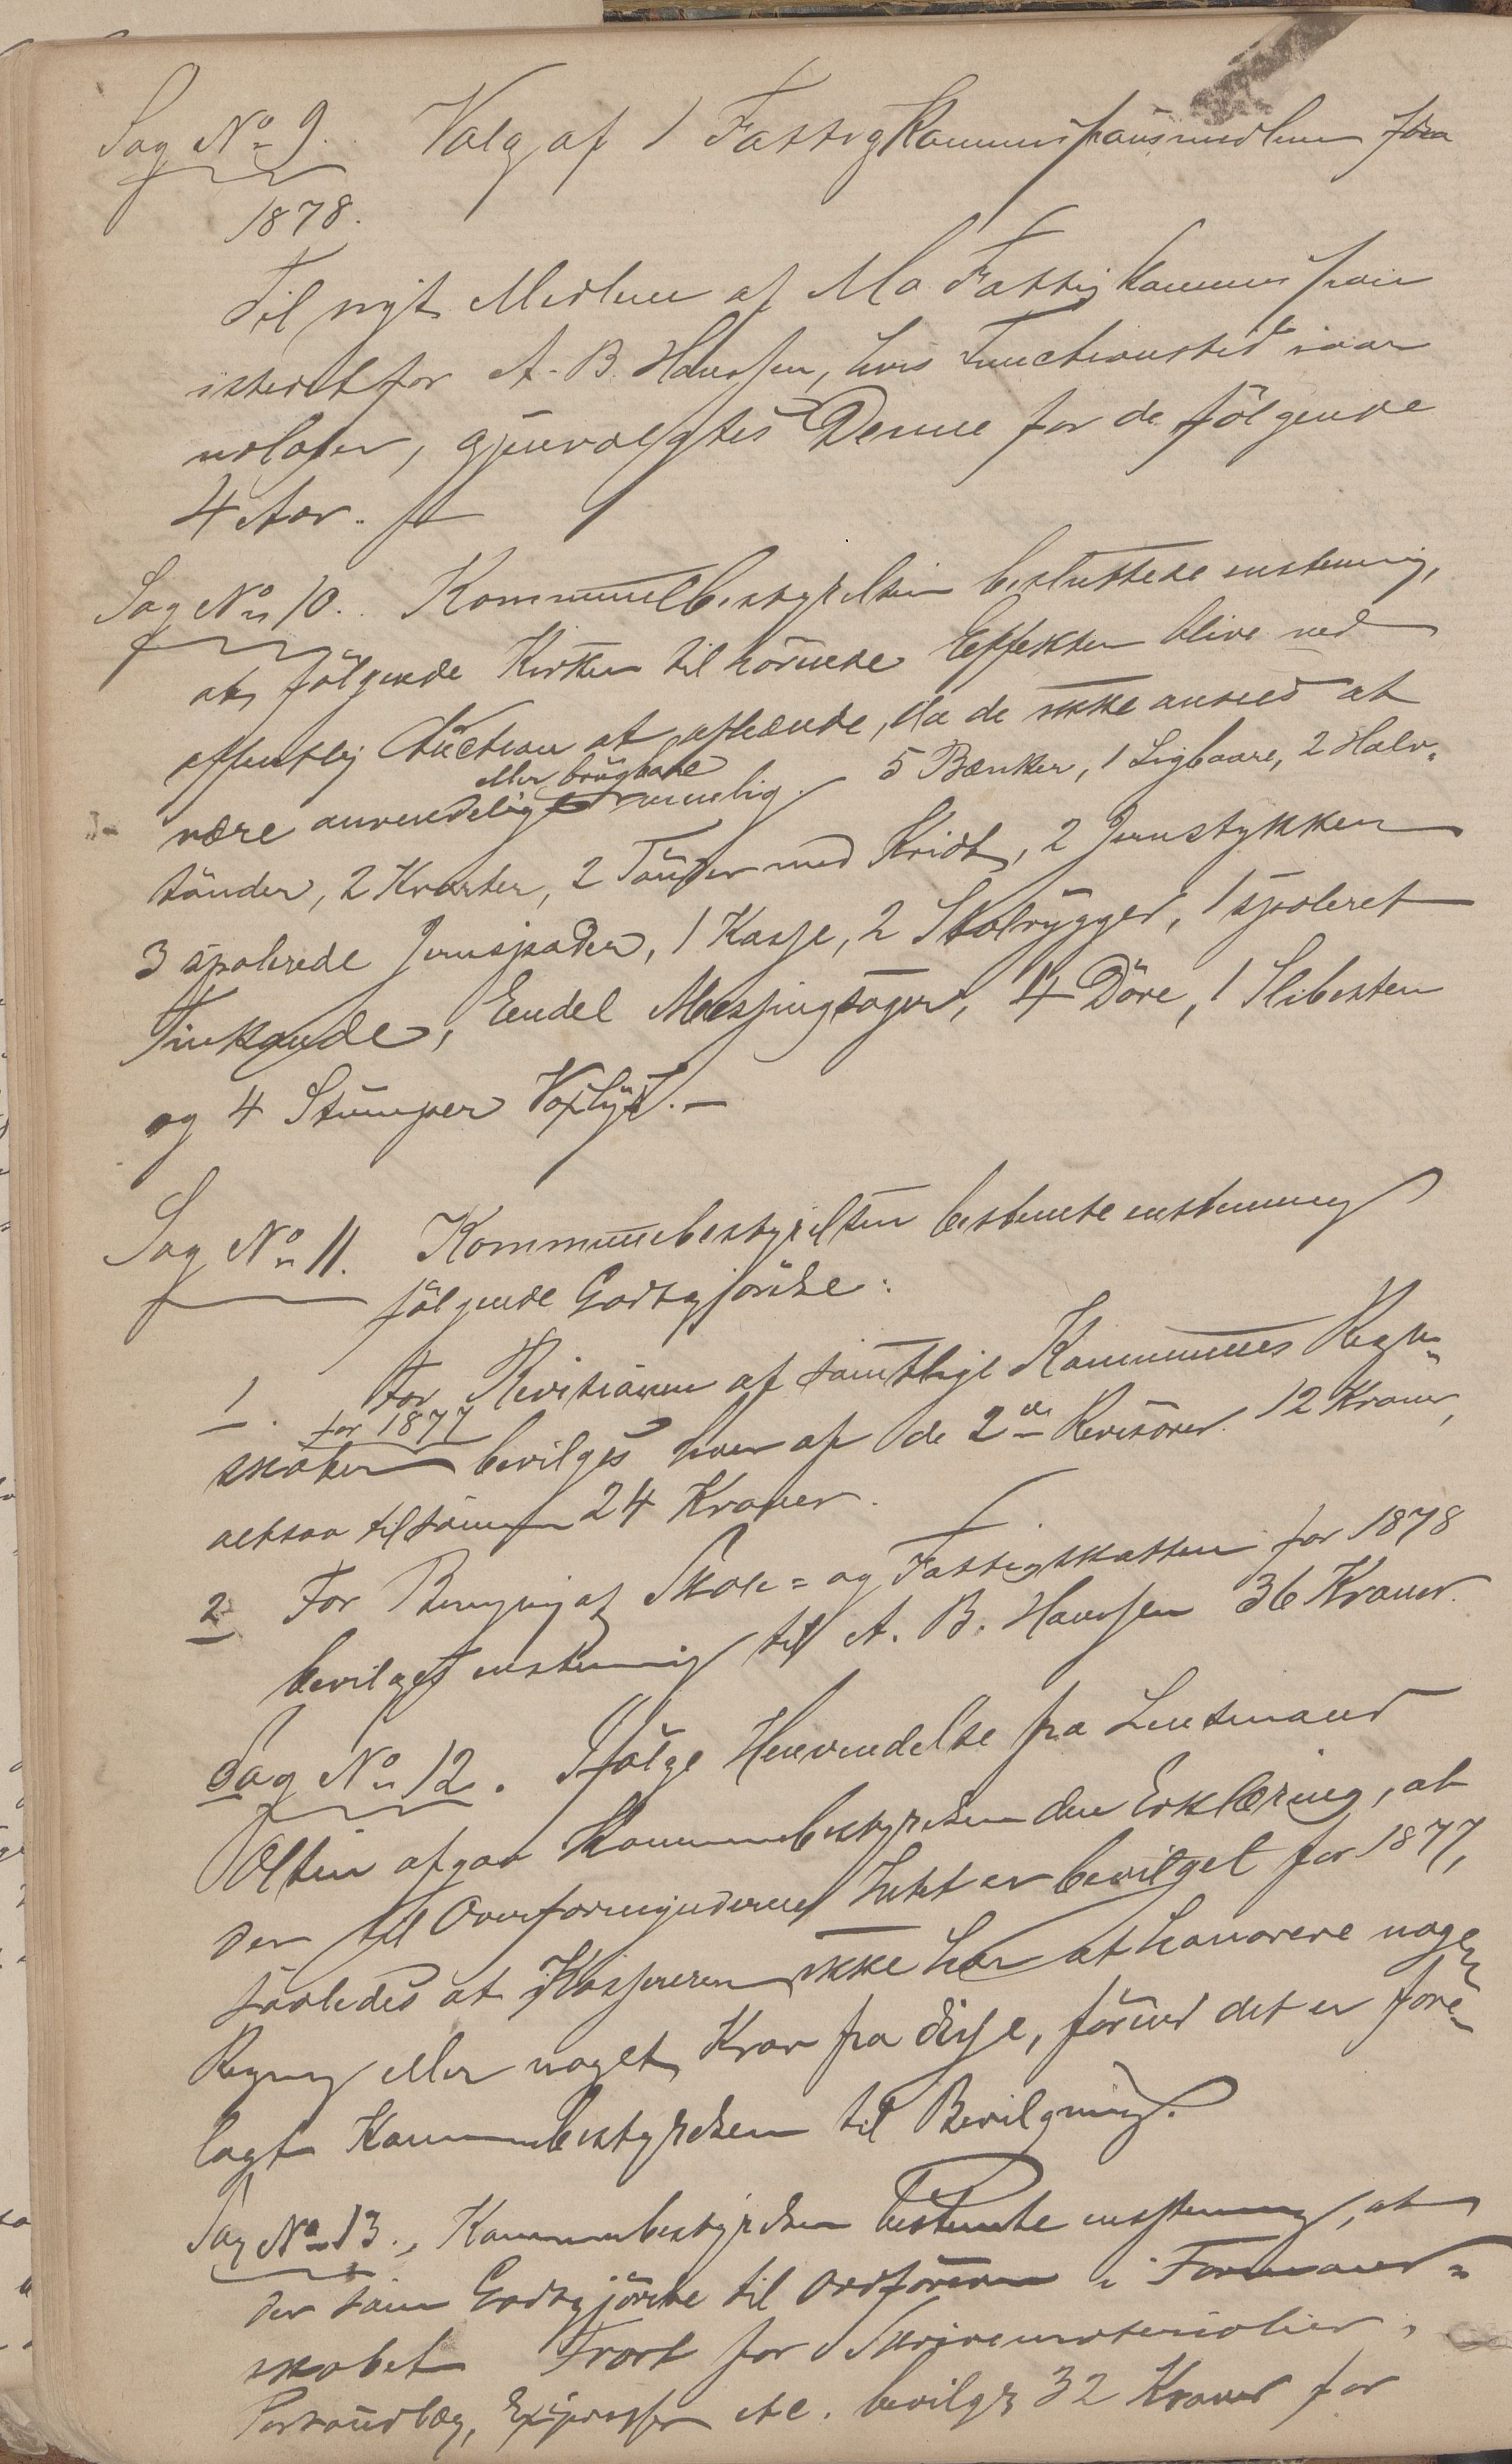 Sag No 9. Valg af 1 Fattigkommissionsmedlem for
1878.
Til nyt Medlem af Mo Fattigkommission
istedetfor A. B. Hanssen, hvis Functionstid iaar
udløber, gjenvalgtes Denne for de følgende
4 Aar.
Sag No 10. Kommunebestyrelsen besluttede enstemmig,
at følgende Kirken tilhørende Effekter blive ved
offentlig Auction at afhænde, da de ikke ansees at
eller brugbare
være anvendelige nemlig: 5 Bænker, 1 Ligbaare, 2 Halv-
tønder, 2 Kvarter, 2 Tønder med Kridt, 2 Jernstykker
3 spolerede Jernspader, 1 Kasse, 2 Stolrygger, 1 spoleret
Tinkande, Endel Messingsager, 4 Døre, 1 Slibesten
og 4 Stumper Voxlys. -
Sag No 11. Kommunebestyrelsen bestemte enstemmig
følgende Godtgjørelse:
1. For Revisionen af samtlige Kommunes Regn-
for 1877
skaber bevilges hver af de 2de Revisorer 12 Kroner,
altsaa tilsammen 24 Kroner.
2 For af Skole- og Fattigskatten for 1878
bevilget enstemmig til A. B. Hanssen 36 Kroner.
Sag No 12. Ifølge Henvendelse fra Lensmand
Olsen afgav Kommunebestyrelsen den Erklæring, at
der til Overformynderne Intet er bevilget for 1877,
saaledes at Kassereren ikke har at honorere nogen
Regning eller noget Krav fra disse, førend det er fore-
lagt Kommunebestyrelsen til Bevilgning.
Sag No 13. Kommunebestyrelsen bestemte enstemmig, at
der som Godtgjørelse til Ordføreren i Formand-
skabet for Skrivematerialier,
etc. bevilges 32 Kroner for